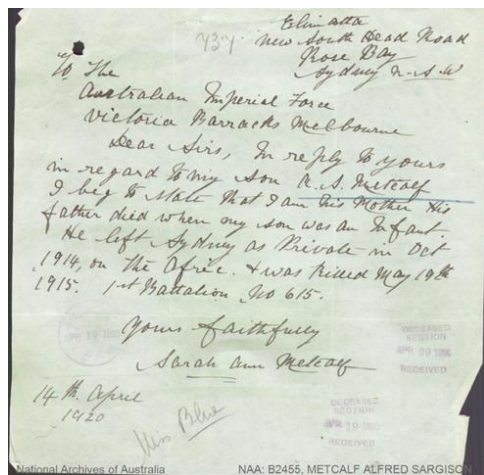 Elimatta
New South Head Road
Rose Bay
Sydney N.S.W
To The
Australian Imperial Force
Victoria Barracks Melbourne
Dear Sirs, In reply to yours
in regard to my son A. S. Metcalf
I beg to state that I am his Mother His
father died when my son was an Infant.
He left Sydney as Private in Oct
1914, on the Afric. & was killed May 19th
1915. 1st Battalion No 615.
Yours faithfully
Sarah Ann Metcalf
14th April
1920
Miss Blue
DECEASED
SECTION
RECEIVED
DECEASED
SECTION
RECEIVED
National Archives of Australia
NAA: B2455, METCALF ALFRED SARGISON